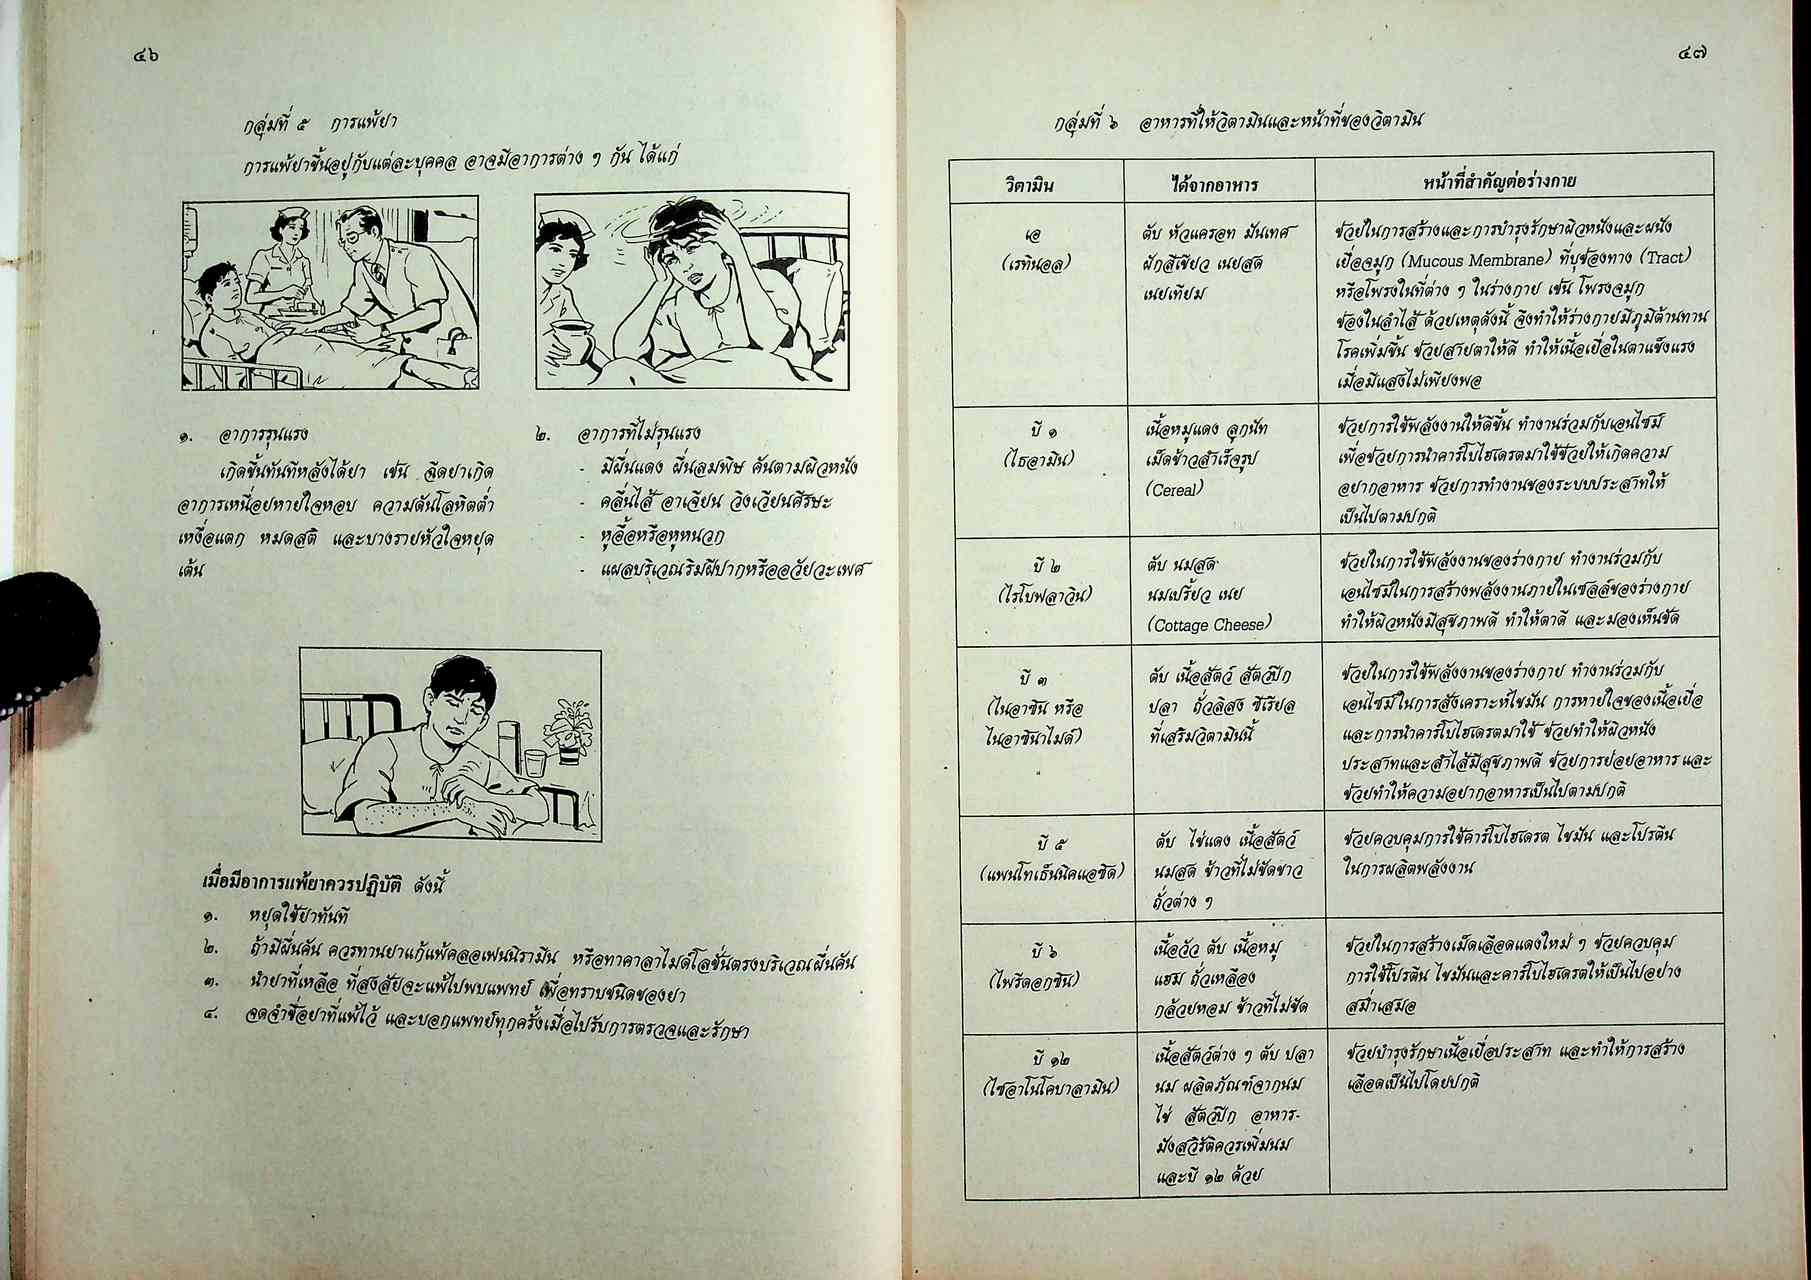 ๔๖
กลุ่มที่ ๕ การแพ้ยา
การแพ้ยาขึ้นอยู่กับแต่ละบุคคล อาจมีอาการต่าง ๆ กัน ได้แก่
๑. อาการรุนแรง
เกิดขึ้นทันทีหลังได้ยา เช่น ฉีดยาเกิด
อาการเหนื่อยหายใจหอบ ความดันโลหิตต่ำ
เหงื่อแตก หมดสติ และบางรายหัวใจหยุด
เต้น
๒. อาการที่ไม่รุนแรง
- มีผื่นแดง ผื่นลมพิษ คันตามผิวหนัง
- คลื่นไส้ อาเจียน วิงเวียนศีรษะ
- หูอื้อหรือหูหนวก
- แผลบริเวณริมฝีปากหรืออวัยวะเพศ
เมื่อมีอาการแพ้ยาควรปฏิบัติ ดังนี้
๑. หยุดใช้ยาทันที
๒. ถ้ามีผื่นคัน ควรทานยาแก้แพ้คลอเฟนนิรามีน หรือทาคาลาไมด์โลชั่นตรงบริเวณผื่นคัน
๓. นำยาที่เหลือ ที่สงสัยจะแพ้ไปพบแพทย์ เพื่อทราบชนิดของยา
๔. จดจำชื่อยาที่แพ้ไว้ และบอกแพทย์ทุกครั้งเมื่อไปรับการตรวจและรักษา
๔๗
กลุ่มที่ ๖ อาหารที่ให้วิตามินและหน้าที่ของวิตามิน
วิตามิน ได้จากอาหาร หน้าที่สำคัญต่อร่างกาย
เอ
(เรทินอล)
ตับ หัวแครอท มันเทศ
ผักสีเขียว เนยสด
เนยเทียม
ช่วยในการสร้างและการบำรุงรักษาผิวหนังและผนัง
เยื่อจมูก (Mucous Membrane) ที่บุช่องทาง (Tract)
หรือโพรงในที่ต่าง ๆ ในร่างกาย เช่น โพรงจมูก
ช่องในลำไส้ ด้วยเหตุดังนี้ จึงทำให้ร่างกายมีภูมิต้านทาน
โรคเพิ่มขึ้น ช่วยสายตาให้ดี ทำให้เนื้อเยื่อในตาแข็งแรง
เมื่อมีแสงไม่เพียงพอ
บี ๑
(ไธอามิน)
เนื้อหมูแดง ลูกนัท
เม็ดข้าวสำเร็จรูป
(Cereal)
ช่วยการใช้พลังงานให้ดีขึ้น ทำงานร่วมกับเอนไซม์
เพื่อช่วยการนำคาร์โบไฮเดรตมาใช้ช่วยให้เกิดความ
อยากอาหาร ช่วยการทำงานของระบบประสาทให้
เป็นไปตามปกติ
บี ๒
(ไรโบฟลาวิน)
ตับ นมสด
นมเปรี้ยว เนย
(Cottage Cheese)
ช่วยในการใช้พลังงานของร่างกาย ทำงานร่วมกับ
เอนไซม์ในการสร้างพลังงานภายในเซลล์ของร่างกาย
ทำให้ผิวหนังมีสุขภาพดี ทำให้ตาดี และมองเห็นชัด
บี ๓
(ไนอาซิน หรือ
ไนอาซินาไมด์)
ตับ เนื้อสัตว์ สัตว์ปีก
ปลา ถั่วลิสง ซีเรียล
ที่เสริมวิตามินนี้
ช่วยในการใช้พลังงานของร่างกาย ทำงานร่วมกับ
เอนไซม์ในการสังเคราะห์ไขมัน การหายใจของเนื้อเยื่อ
และการนำคาร์โบไฮเดรตมาใช้ ช่วยทำให้ผิวหนัง
ประสาทและลำไส้มีสุขภาพดี ช่วยการย่อยอาหาร และ
ช่วยทำให้ความอยากอาหารเป็นไปตามปกติ
บี ๕
(แพนโทเธ็นนิคแอซิด)
ตับ ไข่แดง เนื้อสัตว์
นมสด ข้าวที่ไม่ขัดขาว
ถั่วต่าง ๆ
ช่วยควบคุมการใช้คาร์โบไฮเดรต ไขมัน และโปรตีน
ในการผลิตพลังงาน
บี ๖
(ไพรีดอกซิน)
เนื้อวัว ตับ เนื้อหมู
แฮม ถั่วเหลือง
กล้วยหอม ข้าวที่ไม่ขัด
ช่วยในการสร้างเม็ดเลือดแดงใหม่ ๆ ช่วยควบคุม
การใช้โปรตีน ไขมันและคาร์โบไฮเดรตให้เป็นไปอย่าง
สม่ำเสมอ
บี ๑๒
(ไซอาโนโคบาลามิน)
เนื้อสัตว์ต่าง ๆ ตับ ปลา
นม ผลิตภัณฑ์จากนม
ไข่ สัตว์ปีก อาหาร-
มังสวิรัติควรเพิ่มนม
และบี ๑๒ ด้วย
ช่วยบำรุงรักษาเนื้อเยื่อประสาท และทำให้การสร้าง
เลือดเป็นไปโดยปกติ